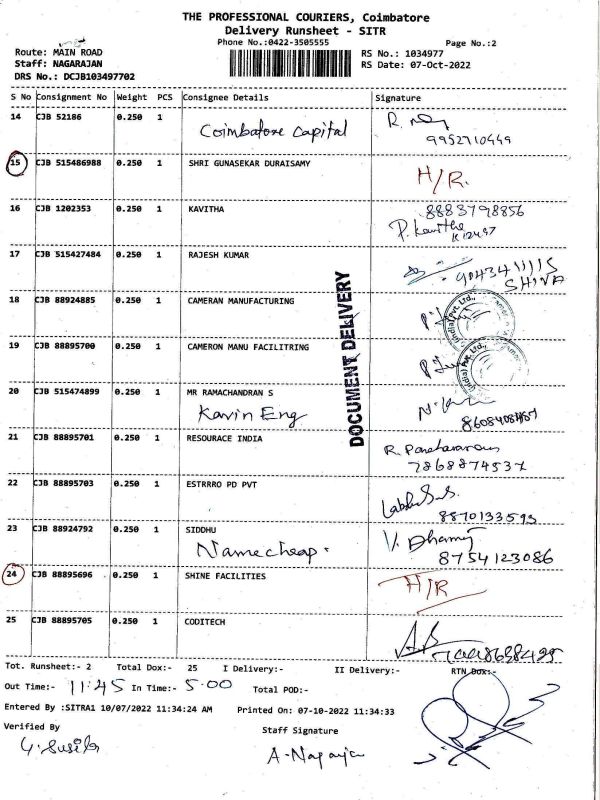 THE PROFESSIONAL COURIERS, Coimbatore
Delivery Runsheet - SITR
Phone No.:0422-3505555
Page No.:2
Route: MAIN ROAD
RS No.: 1034977
Staff: NAGARAJAN
RS Date: 07-Oct-2022
DRS No.: DCJB103497702
S No Consignment No Weight PCS Consignee Details Signature
14 CJB 52186 0.250 1 Coimbatore Capital R.
9952710449
15 CJB 515486988 0.250 1 SHRI GUNASEKAR DURAISAMY H/R.
16 CJB 1202353 0.250 1 KAVITHA 8883798856
P. Kavitha
17 CJB 515427484 0.250 1 RAJESH KUMAR 9043411115
SHIVA
18 CJB 88924885 0.250 1 CAMERAN MANUFACTURING
19 CJB 88895700 0.250 1 CAMERON MANU FACILITRING
DOCUMENT DELIVERY
20 CJB 515474899 0.250 1 MR RAMACHANDRAN S
Kavin Eng
21 CJB 88895701 0.250 1 RESOURACE INDIA R.
7868874537
22 CJB 88895703 0.250 1 ESTRRRO PD PVT
8870133593
23 CJB 88924792 0.250 1 SIDDHU V. Dhamu
Namecheap. 8754123086
24 CJB 88895696 0.250 1 SHINE FACILITIES H/R
25 CJB 88895705 0.250 1 CODITECH
Tot. Runsheet:- 2 Total Dox:- 25 I Delivery:- II Delivery:- RTN Dox:-
Out Time:- 11:45 In Time:- 5:00 Total POD:-
Entered By :SITRA1 10/07/2022 11:34:24 AM Printed On: 07-10-2022 11:34:33
Verified By Staff Signature